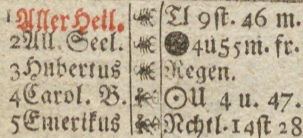 1 Aller Heil. Tl 9st. 46 m.
2 All. Seel. 4u55m. fr.
3 Hubertus Regen.
4 Carol. B. ☉U 4 u. 47.
5 Emerikus Nchtl. 14st 28